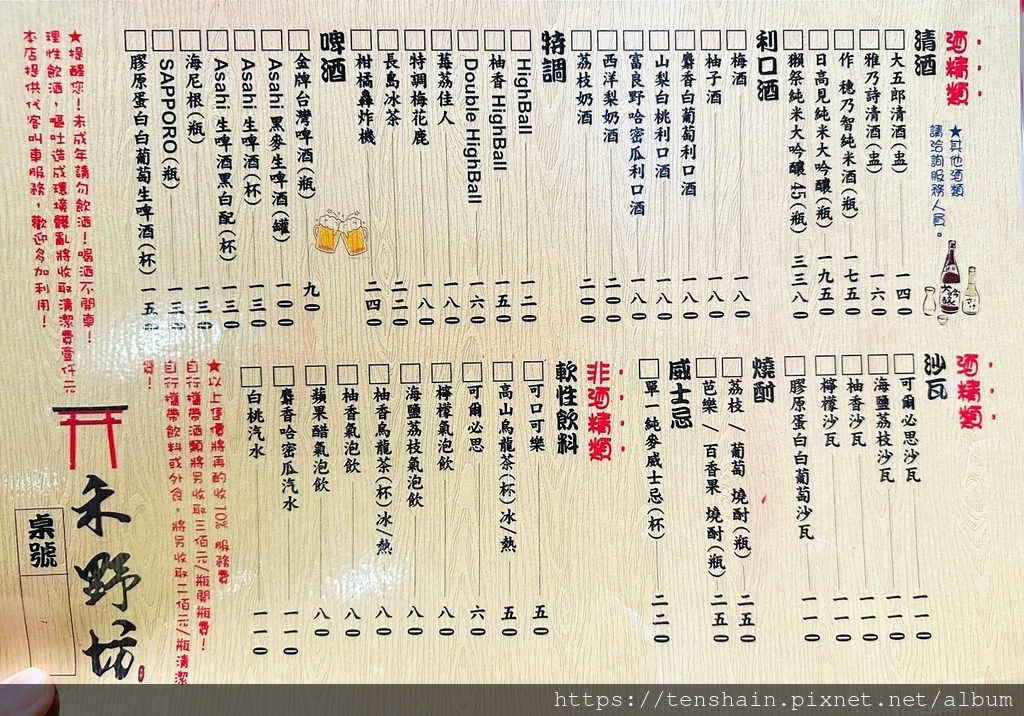 酒精類
★其他酒類
請洽詢服務人員。
清酒
大五郎清酒(盅) 一四〇
雅乃詩清酒(盅) 一六〇
作 穗乃智純米酒(瓶) 一七五〇
日高見純米大吟釀(瓶) 一九五〇
獺祭純米大吟釀 45(瓶) 三三八〇
利口酒
梅酒 一八〇
柚子酒 一八〇
麝香白葡萄利口酒 一八〇
山梨白桃利口酒 一八〇
富良野哈密瓜利口酒 一八〇
西洋梨奶酒 二〇〇
荔枝奶酒 二〇〇
特調
HighBall 一二〇
柚香 HighBall 一五〇
Double HighBall 一六〇
莓荔佳人 一八〇
特調梅花鹿 一八〇
長島冰茶 二二〇
柑橘轟炸機 二四〇
啤酒
金牌台灣啤酒(瓶) 九〇
Asahi 黑麥生啤酒(罐) 一〇〇
Asahi 生啤酒(杯) 一三〇
Asahi 生啤酒黑白配(杯) 一三〇
海尼根(瓶) 一三〇
SAPPORO(瓶) 一三〇
膠原蛋白白葡萄生啤酒(杯) 一五〇
★提醒您!未成年請勿飲酒!喝酒不開車!
理性飲酒,嘔吐造成環境髒亂將收取清潔費壹仟元
本店提供代客叫車服務,歡迎多加利用!
酒精類
沙瓦
可爾必思沙瓦 一一〇
海鹽荔枝沙瓦 一一〇
柚香沙瓦 一一〇
檸檬沙瓦 一一〇
膠原蛋白白葡萄沙瓦 一一〇
燒酎
荔枝/葡萄 燒酎(瓶) 二五〇
芭樂/百香果 燒酎(瓶) 二五〇
威士忌
單一純麥威士忌(杯) 二二〇
非酒精類
軟性飲料
可口可樂 五〇
高山烏龍茶(杯)冰/熱 五〇
可爾必思 六〇
檸檬氣泡飲 八〇
海鹽荔枝氣泡飲 八〇
柚香烏龍茶(杯)冰/熱 八〇
柚香氣泡飲 八〇
蘋果醋氣泡飲 八〇
麝香哈密瓜汽水 一一〇
白桃汽水 一一〇
★以上售價將再酌收 10% 服務費
自行攜帶酒類將另收取三佰元/瓶開瓶費!
自行攜帶飲料或外食,將另收取二佰元/瓶清潔
費!
禾野坊
桌號
大吟釀
https://tenshain.pixnet.net/album